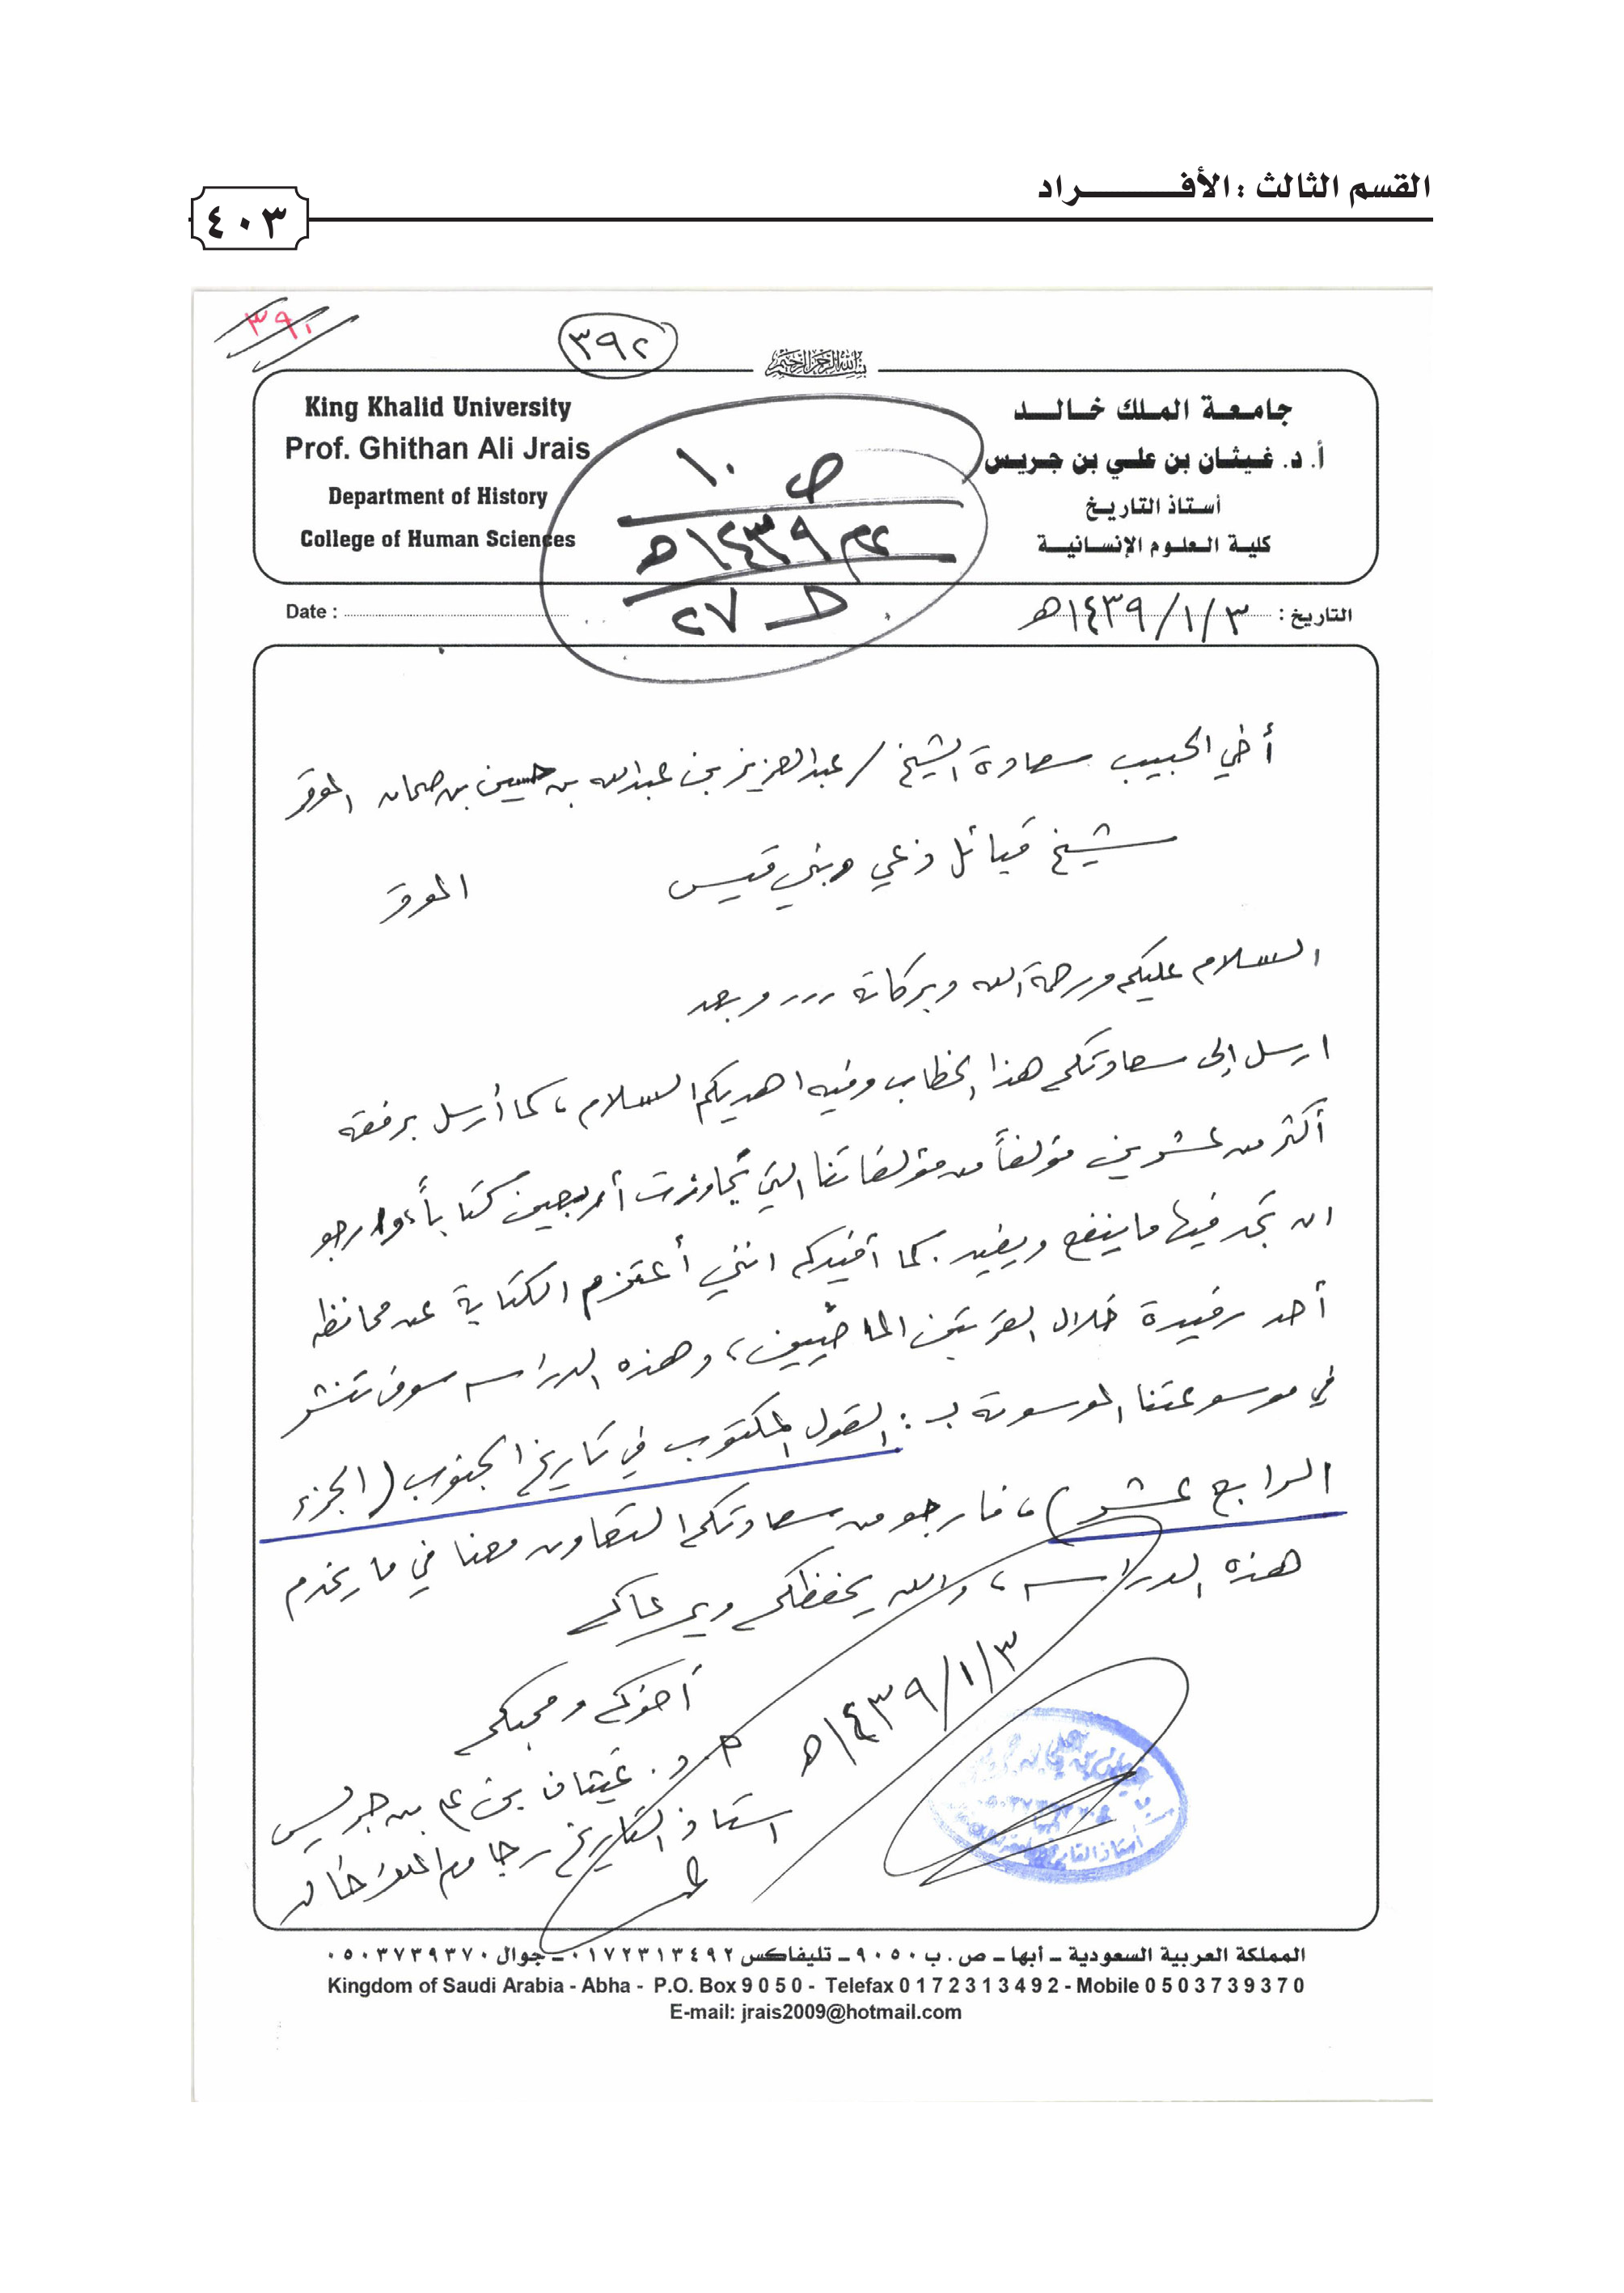 القسم الثالث : الأفـــــــراد
٤٠٣
٣٩١
٣٩٢
بسم الله الرحمن الرحيم
King Khalid University
Prof. Ghithan Ali Jrais
Department of History
College of Human Sciences
جامعة الملك خالد
أ. د. غيثان بن علي بن جريس
أستاذ التاريخ
كلية العلوم الإنسانية
ص ١٠
١٤٣٩هـ
ط ٢٧
Date :
التاريخ : ١٤٣٩/١/٣هـ
أخي الحبيب سعادة الشيخ / عبدالعزيز بن عبدالله بن حسين بن صمان الموقر
شيخ قبائل وبني قيس الموقر
السلام عليكم ورحمة الله وبركاته ... وبعد
ارسل إلى سعادتكم هذا الخطاب وفيه اهديكم السلام، كما أرسل برفقه
أكثر من عشرين مؤلفاً من مؤلفاتنا التي تجاوزت أربعين كتاباً، وارجو
ان تجد فيها ما ينفع ويفيد. كما افيدكم انني أعتزم الكتابة عن محافظة
أحد رفيدة خلال القرنين الماضيين، وهذه الدراسة سوف تنشر
في موسوعتنا الموسومة بـ : القول المكتوب في تاريخ الجنوب (الجزء
الرابع عشر)، فارجو من سعادتكم التعاون معنا في ما يخدم
هذه الدراسة، والله يحفظكم ويرعاكم
أخوكم ومحبكم
١٤٣٩/١/٣هـ
أ. د. غيثان بن علي بن جريس
استاذ التاريخ بجامعة الملك خالد
المملكة العربية السعودية ـ أبها ـ ص . ب ٩٠٥٠ ـ تليفاكس ٠١٧٢٣١٣٤٩٢ ـ جوال ٠٥٠٣٧٣٩٣٧٠
Kingdom of Saudi Arabia - Abha - P.O. Box 9 0 5 0 - Telefax 0 1 7 2 3 1 3 4 9 2 - Mobile 0 5 0 3 7 3 9 3 7 0
E-mail: jrais2009@hotmail.com